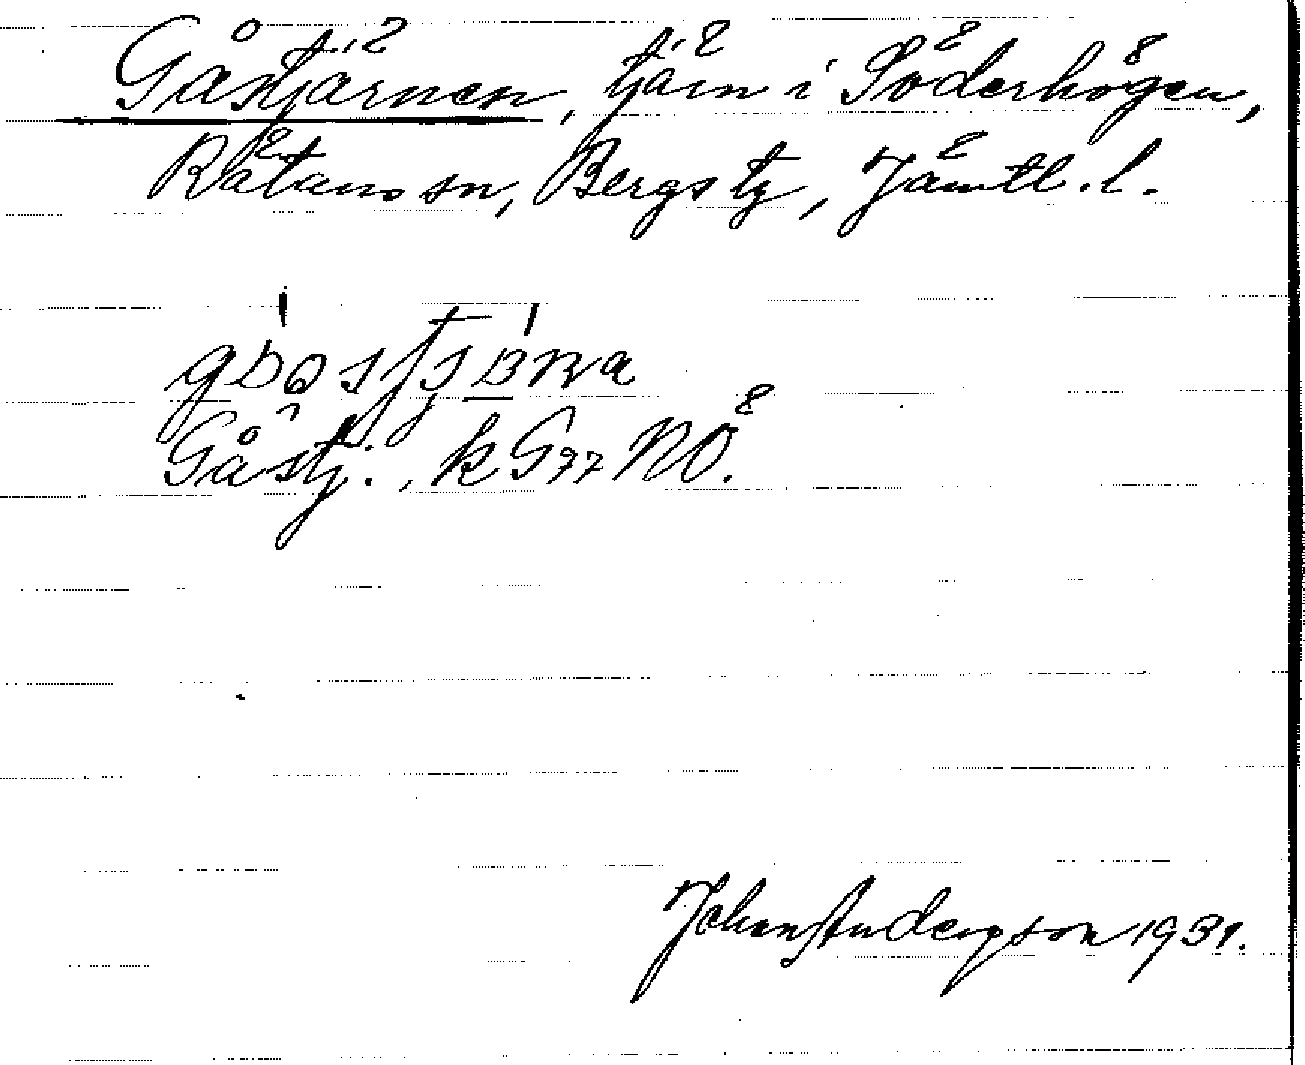 Gåstjärnen, tjärn i Söderhögen,
Rätans sn, Bergs tg, Jämtl. l.
Gåstj., kG 97 NÖ.
Johan Anderson 1931.